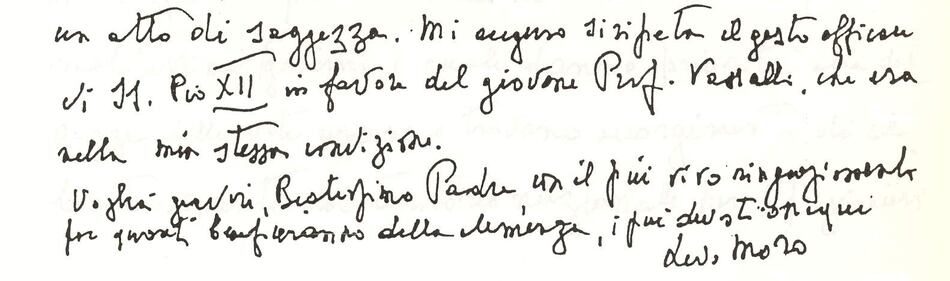 un atto di saggezza. Mi auguro si ripeta il gesto efficace
di SS. Pio XII in favore del giovane Prof. Vassalli, che era
nella mia stessa condizione.
Voglia gradire, Beatissimo Padre con il più vivo ringraziamento
per quanti beneficeranno della clemenza, i più devoti ossequi
Dev. Moro